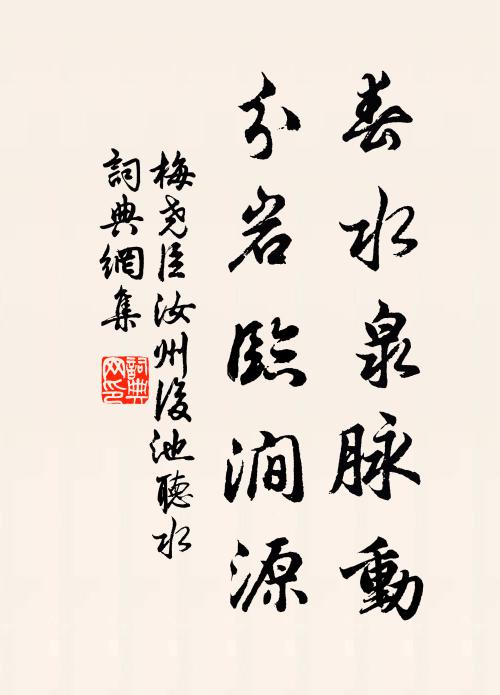 春水泉脉動
分岩臨澗源
梅尭臣汝州後池聽水
詞典網集
詞典網印